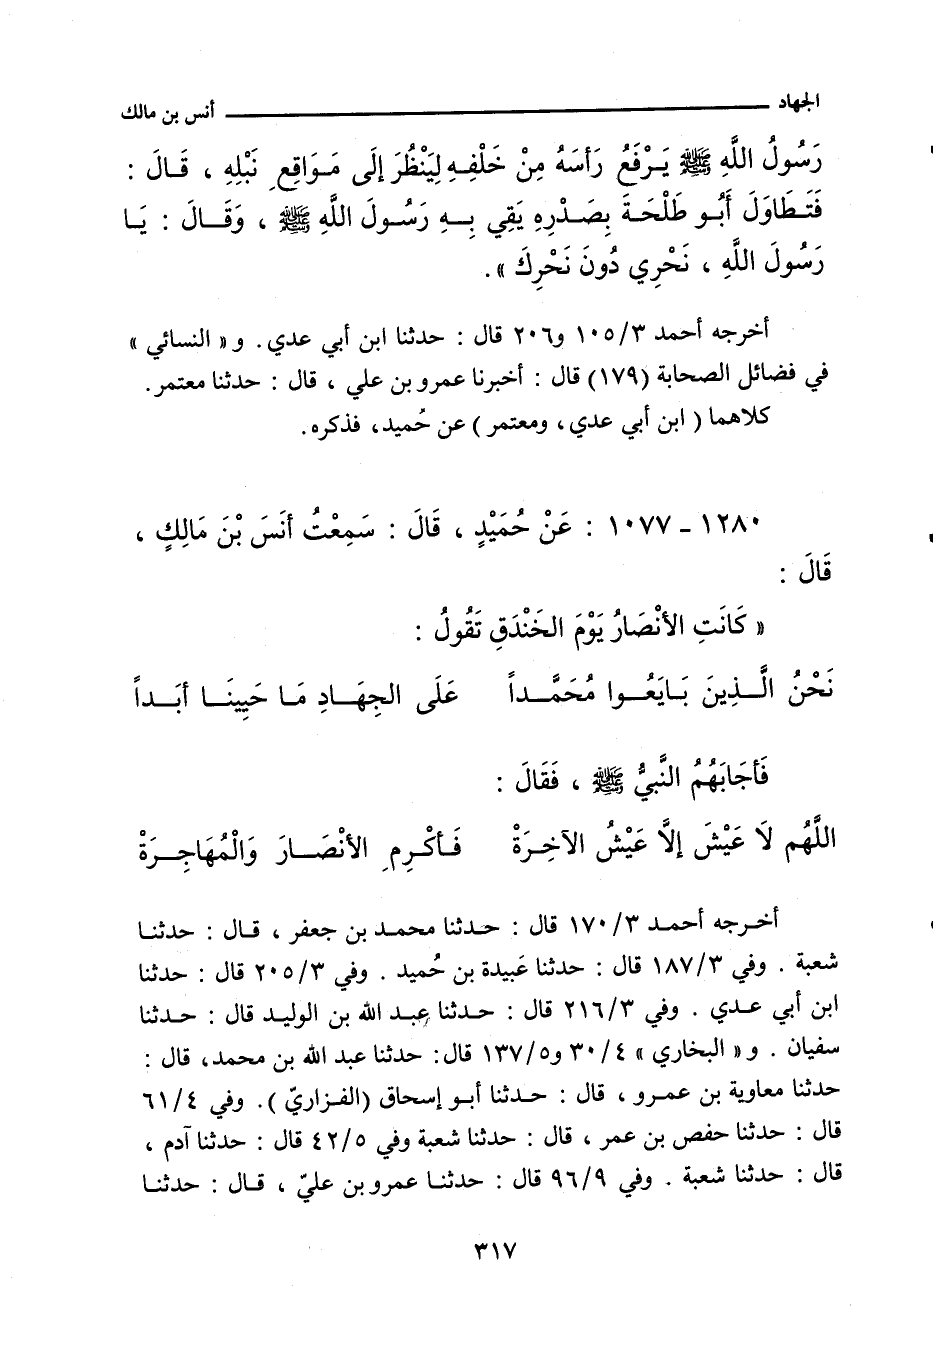 الجهاد أنس بن مالك
رَسُولُ اللَّهِ ﷺ يَرْفَعُ رَأسَهُ مِنْ خَلْفِهِ لِيَنْظُرَ إلَى مَوَاقِعِ نَبْلِهِ ، قَالَ :
فَتَطَاوَلَ أَبُو طَلْحَةَ بِصَدْرِهِ يَقِي بِهِ رَسُولَ اللَّهِ ﷺ ، وَقَالَ : يَا
رَسُولَ اللَّهِ ، نَحْرِي دُونَ نَحْرِكَ » .
أخرجه أحمد ٣/١٠٥ و٢٠٦ قال : حدثنا ابن أبي عدي. و« النسائي »
في فضائل الصحابة (١٧٩) قال : أخبرنا عمرو بن علي ، قال : حدثنا معتمر.
كلاهما ( ابن أبي عدي، ومعتمر ) عن حُميد، فذكره.
١٢٨٠ - ١٠٧٧ : عَنْ حُمَيْدٍ ، قَالَ : سَمِعْتُ أنَسَ بْنَ مَالِكٍ ،
قَالَ :
« كَانَتِ الأنْصَارُ يَوْمَ الخَنْدَقِ تَقُولُ :
نَحْنُ الَّذِينَ بَايَعُوا مُحَمَّداً عَلَى الجِهَادِ مَا حَيِينَا أبَداً
فَأجَابَهُمُ النَّبِيُّ ﷺ ، فَقَالَ :
اللَّهُم لَا عَيْشَ إلَّا عَيْشُ الآخِرَةْ فَأكْرِمِ الأنْصَارَ وَالْمُهَاجِرَةْ
أخرجه أحمد ٣/١٧٠ قال : حدثنا محمد بن جعفر ، قال : حدثنا
شعبة . وفي ٣/١٨٧ قال : حدثنا عَبيدة بن حُميد . وفي ٣/٢٠٥ قال : حدثنا
ابن أبي عدي . وفي ٣/٢١٦ قال : حدثنا عبد الله بن الوليد قال : حدثنا
سفيان . و« البخاري » ٤/٣٠ و٥/١٣٧ قال: حدثنا عبد الله بن محمد، قال :
حدثنا معاوية بن عمرو ، قال : حدثنا أبو إسحاق (الفزاريّ ). وفي ٤/٦١
قال : حدثنا حفص بن عمر ، قال : حدثنا شعبة وفي ٥/٤٢ قال : حدثنا آدم ،
قال : حدثنا شعبة . وفي ٩/٩٦ قال : حدثنا عمرو بن عليّ ، قال : حدثنا
٣١٧